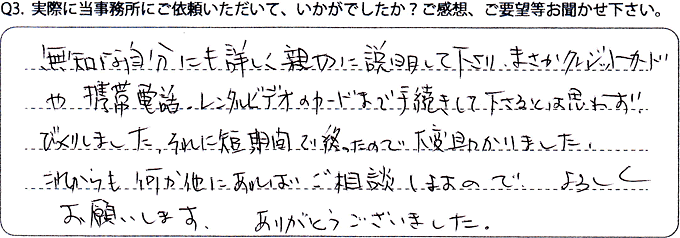 Q3. 実際に当事務所にご依頼いただいて、いかがでしたか？ご感想、ご要望等お聞かせ下さい。
無知な自分にも詳しく親切に説明して下さり、まさかクレジットカード
や携帯電話、レンタルビデオのカードまで手続きして下さるとは思わず!!
びっくりしました、それに短期間で終ったので大変助かりました。
これからも何か他にあればご相談しますので よろしく
お願いします、ありがとうございました。